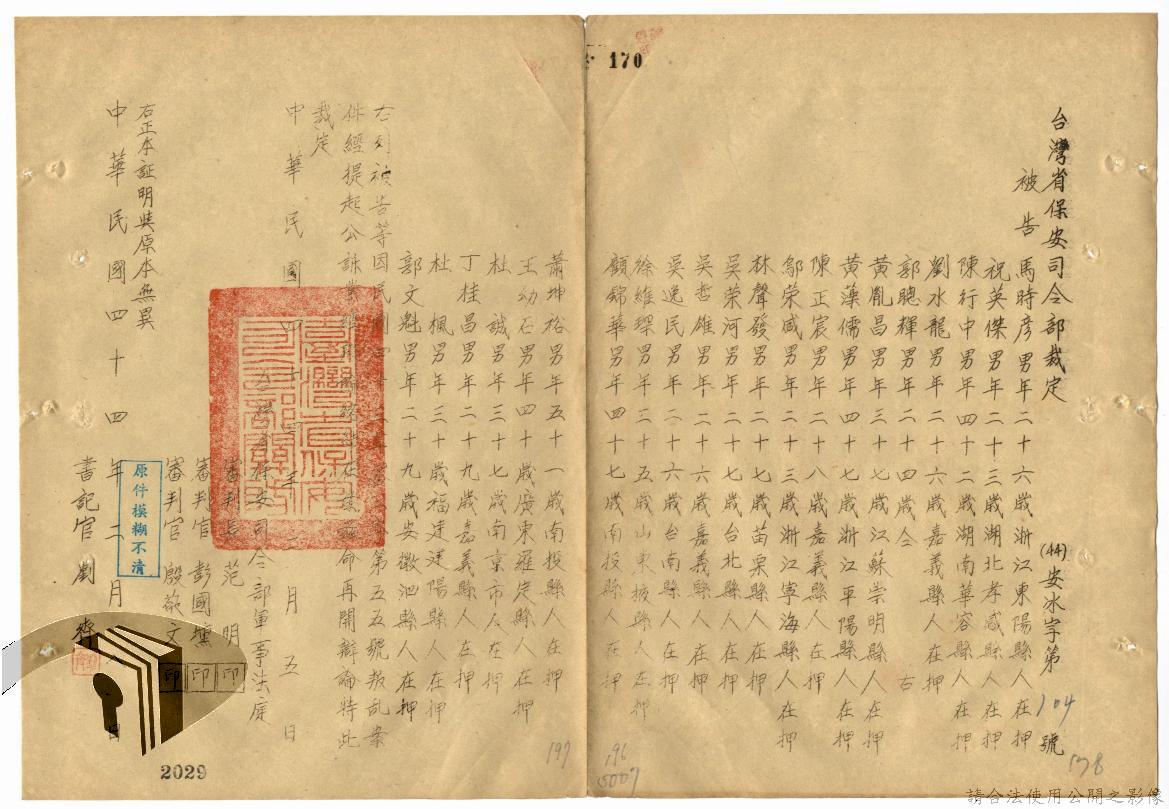 170
台灣省保安司令部裁定
(44)安水字第104號
被告 馬時彥 男年二十六歲浙江東陽縣人在押
祝英傑 男年二十三歲湖北孝感縣人在押
陳行中 男年四十二歲湖南華容縣人在押
劉水龍 男年二十六歲嘉義縣人在押
郭聰輝 男年二十四歲仝右
黃胤昌 男年三十七歲江蘇崇明縣人在押
黃藻儒 男年四十七歲浙江平陽縣人在押
陳正宸 男年二十八歲嘉義縣人在押
鄔榮咸 男年二十三歲浙江寧海縣人在押
林聲發 男年二十七歲苗栗縣人在押
吳荣河 男年二十七歲台北縣人在押
吳哲雄 男年二十六歲嘉義縣人在押
吳逸民 男年二十六歲台南縣人在押
徐維琛 男年三十五歲山東掖縣人在押
顧錦華 男年四十七歲南投縣人在押
蕭坤裕 男年五十一歲南投縣人在押
王幼石 男年四十歲廣東羅定縣人在押
杜誠 男年三十七歲南京市人在押
丁桂昌 男年二十九歲嘉義縣人在押
杜楓 男年三十三歲福建建陽縣人在押
郭文魁 男年二十九歲安徽泗縣人在押
右列被告等因民國四十三年第五五號叛乱案
件經提起公訴業經命再開辯論特此
裁定
中華民國四十四年二月五日
台灣省保安司令部軍事法庭
審判長 范明 印
審判官 彭國壎 印
審判官 殷敬文 印
右正本証明與原本無異
中華民國四十四年二月八日
書記官 劉
原件模糊不清
197
196
5007
178
2029
請合法使用公開之影像